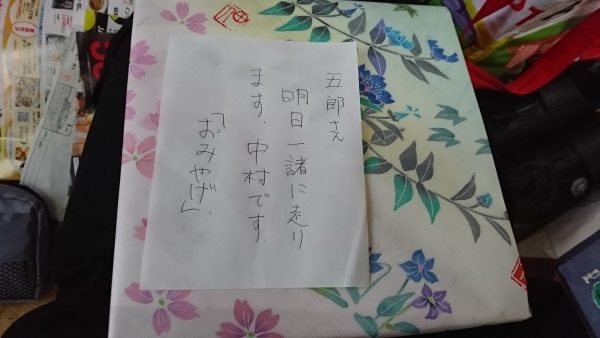 五郎さん
明日一諸に走り
ます．中村です．
「おみやげ．」